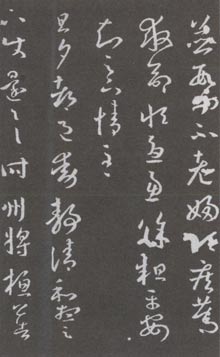 並數問不老婦頃疾篤
救命恒憂慮餘粗平安
知足下情至
旦夕都邑動靜清和想足
下使還一一時州將桓公告